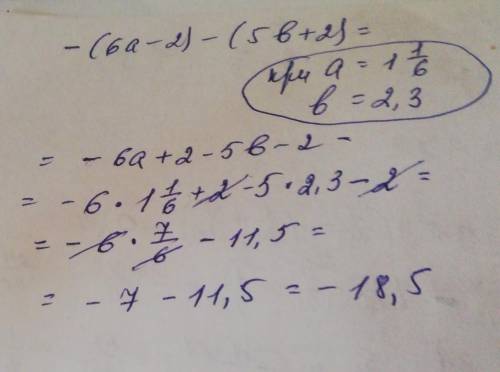 -(6a-2)-(5b+2)=
при a = 1 1/6
b = 2,3
= -6a+2-5b-2 -
= -6·1 1/6 +2-5·2,3-2 =
= -6·7/6 - 11,5 =
= -7-11,5 = -18,5